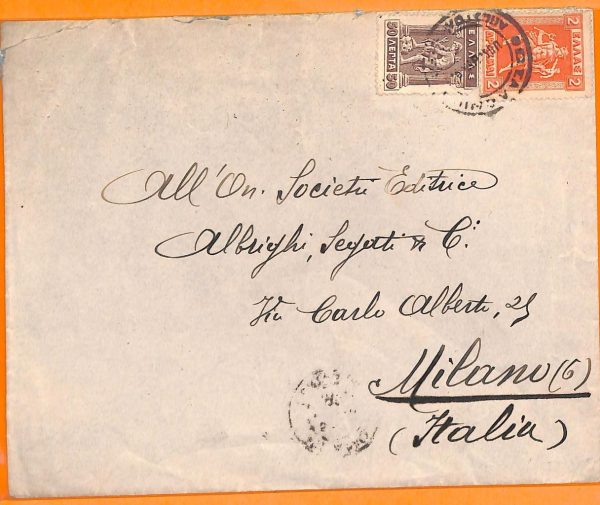 50 ΛΕΠΤΑ 50
ΕΛΛΑΣ
2 ΕΛΛΑΣ 2
All'On. Società Editrice
Albrighi, Segati & C.i
Via Carlo Alberto, 25
Milano (6)
(Italia)